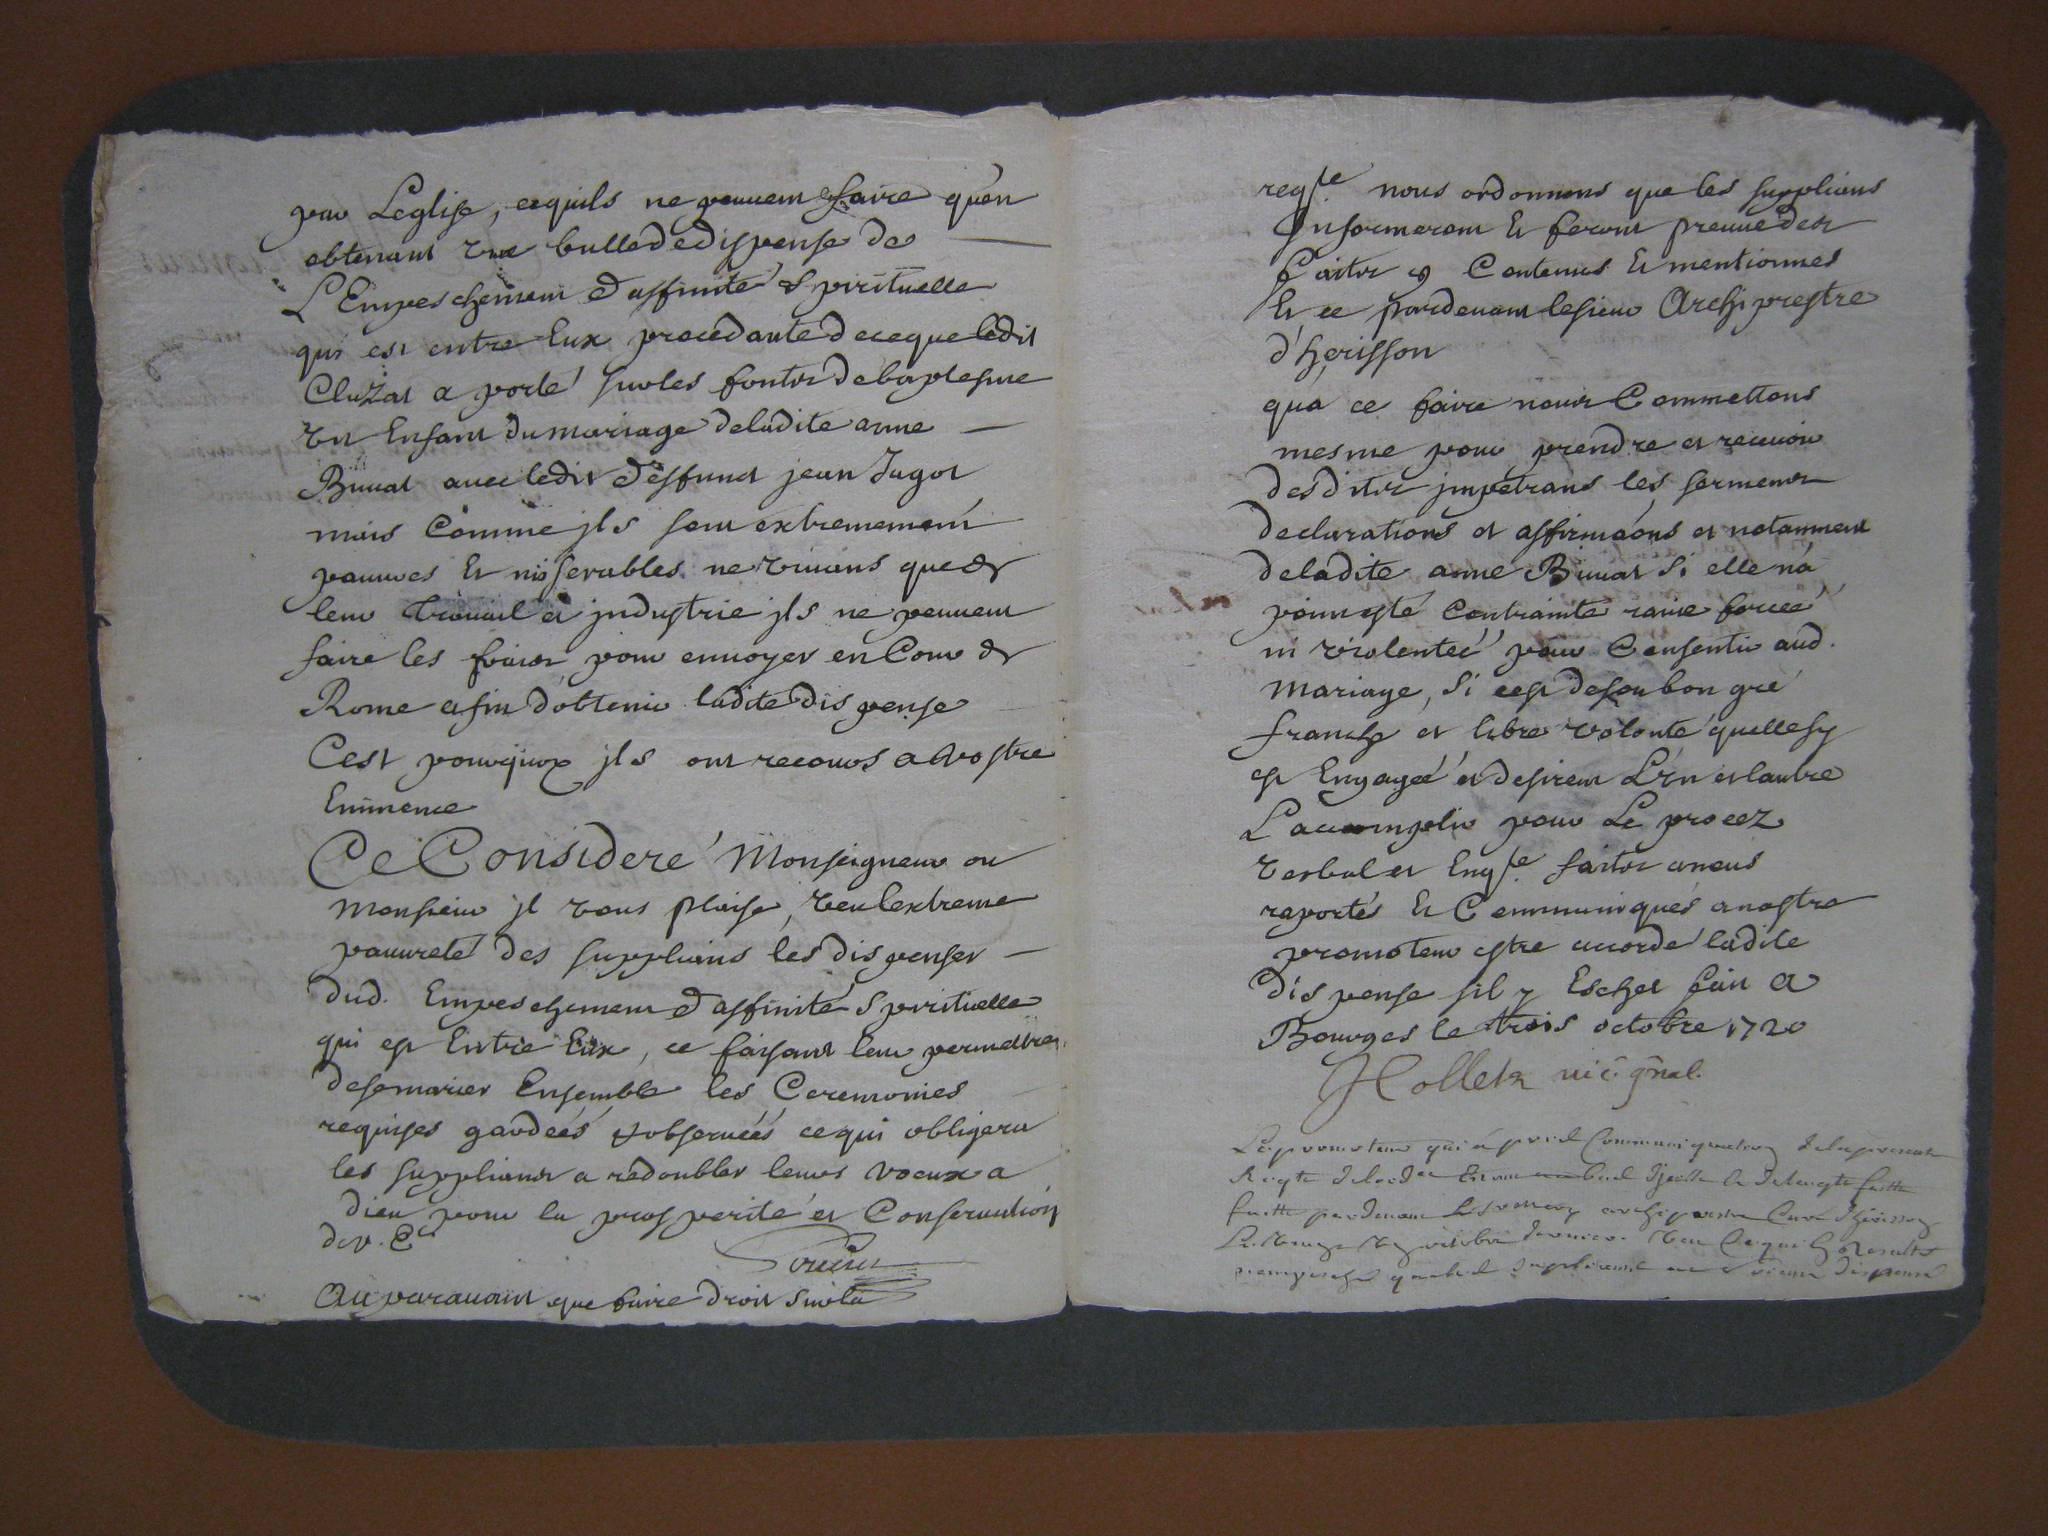 par Leglise, cequils ne peuuent faire qu'en
obtenant vne bulle de dispense de
L'Empeschement d'affinité spirituelle
qui est entre Eux procedante de ceque ledit
Cluzat a porté sur les fonts de baptesme
vn Enfant du mariage deladite anne
Buuat auec ledit deffunct jean Jugot
mais Comme jls sont extremement
pauures Et misserables ne viuans que de
leur trauail et jndustrie jls ne peuuent
faire les frais pour enuoyer en Cour de
Rome afin d'obtenir ladite dispense
C'est pourquoy jls ont recours a Vostre
Eminence
Ce Consideré Monseigneur ou
Monsieur jl vous plaise, veu lextreme
pauureté des supplians les dispenser
dud. Empeschement d'affinité spirituelle
qui est Entre Eux, ce faisant leur permettre
de se marier Ensemble les Ceremonies
requises gardéés & obseruéés ce qui obligera
les supplians a redoubler leurs voeux a
dieu pour la prosperité et Conseruation
de v. Ece
Auparauant que faire droit sur la
reqte nous ordonnons que les supplians
Jnformeront Et feront preuue des
faits y Contenus Et mentionnes
Et ce pardeuant le sieur Archiprestre
d'herisson
qu'a ce faire nous Commettons
mesme pour prendre et receuoir
desdits jmpetrans les serments
declarations et affirmaons et notamment
deladite anne Buuat si elle n'a
point esté contrainte rauie forceé
ni violenteé pour Consentir aud.
mariage, si cest de son bon gré
franche et libre volonté quelle sy
est Engageé et desirent L'vn et lautre
L'accomplir pour Le procez
verbal et Enqte faits a nous
raportés Et Communiqués a nostre
promoteur estre accordé ladite
dispense sil y Eschet fait a
Bourges le trois octobre 1720
vic gnal.
Le promoteur qui a pris Communication de la presente
faitte pardeuant archiprestre Curé d'herisson
octobre dernier. veu Ce qui En resulte
n'empesche dispensé